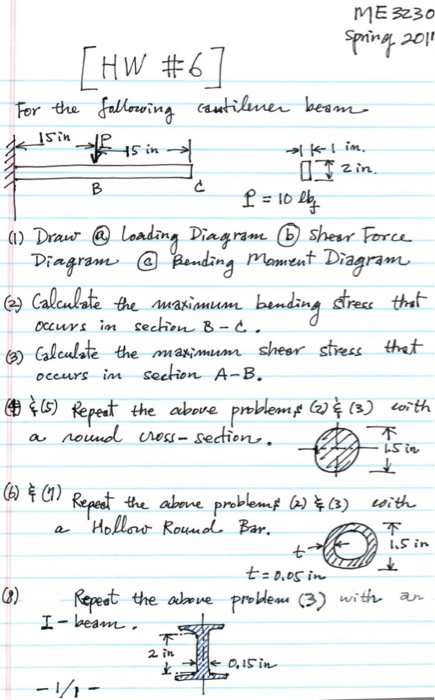 ME 3230
Spring 2011
[HW #6]
For the following cantilever beam
15 in P 15 in
1 in.
2 in.
B C
P = 10 lbf
(1) Draw ⓐ Loading Diagram ⓑ Shear Force
Diagram ⓒ Bending Moment Diagram
(2) Calculate the maximum bending stress that
occurs in section B-C.
(3) Calculate the maximum shear stress that
occurs in section A-B.
(4) & (5) Repeat the above problems (2) & (3) with
a round cross-section.
1.5 in
(6) & (7) Repeat the above problems (2) & (3) with
a Hollow Round Bar.
t
1.5 in
t = 0.05 in
(8) Repeat the above problem (3) with an
I-beam.
2 in
0.15 in
-1/1-